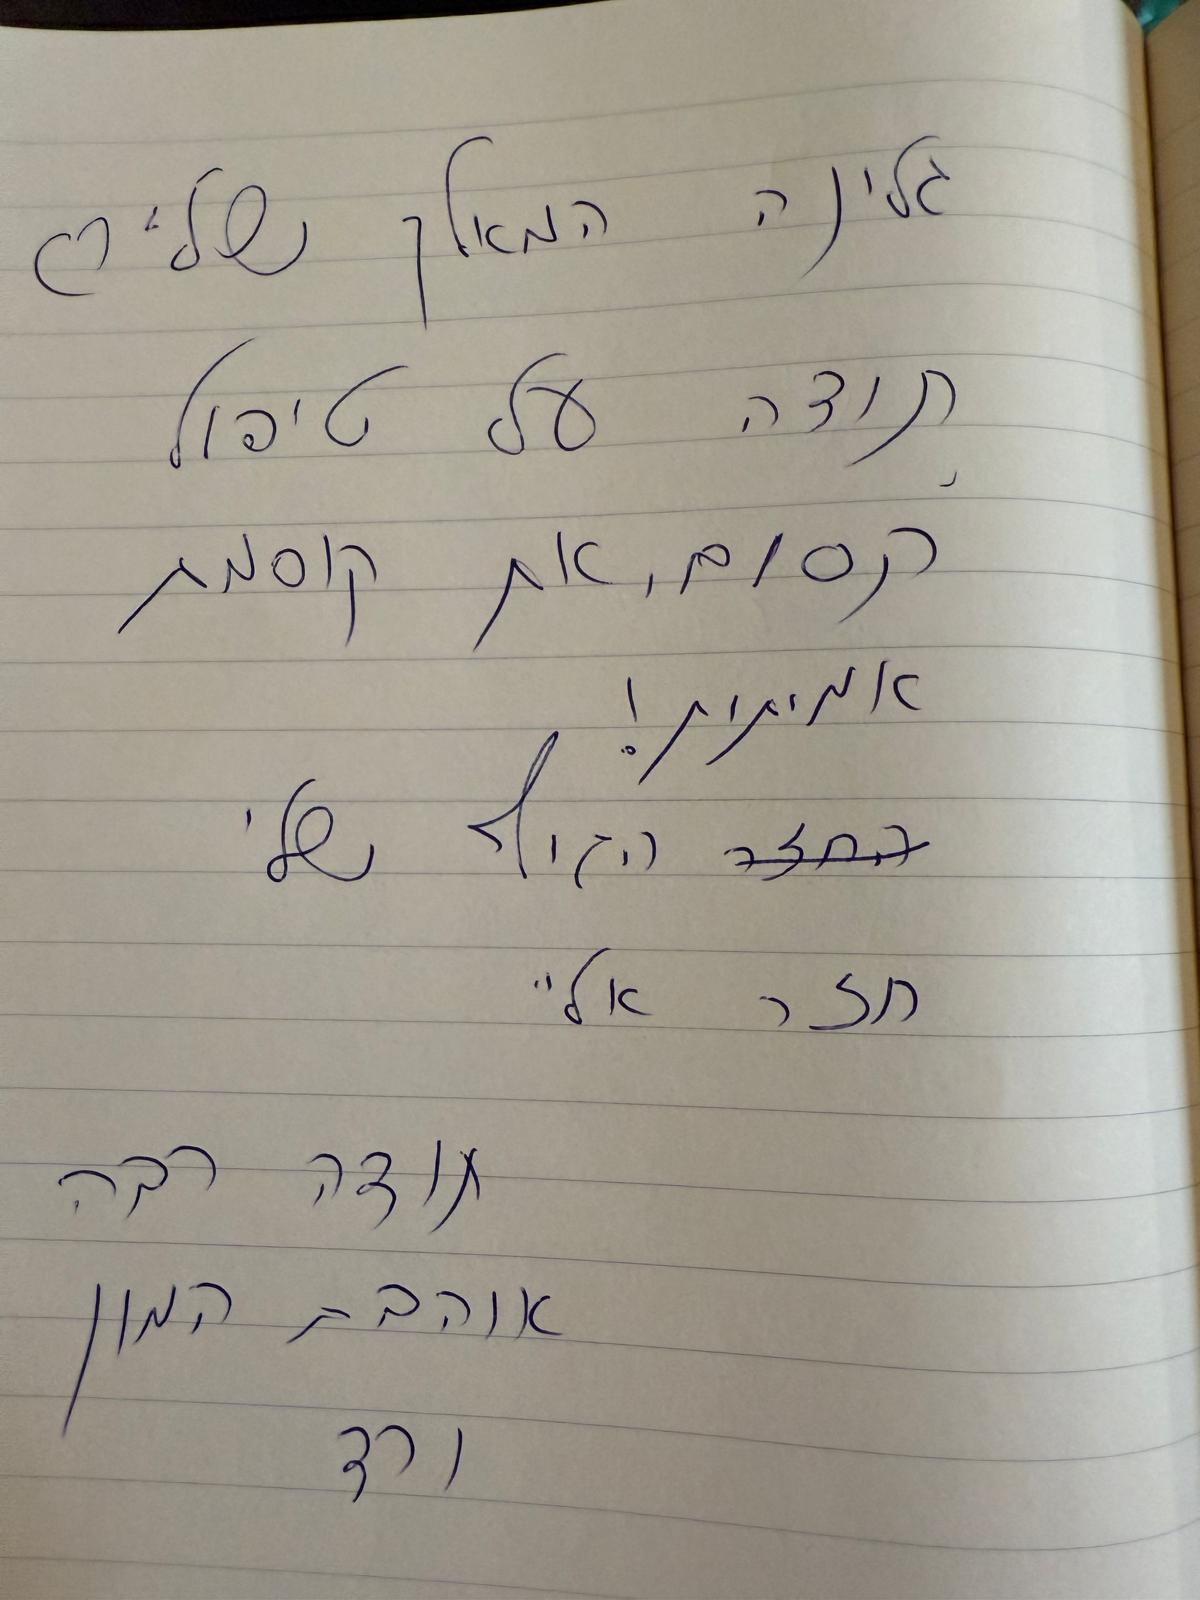 גלינה המאלך שלי
תודה על טיפול
קסום, את קוסמת
אמיתית!
הגוף שלי
חזר אליי
תודה רבה
אוהבת המון
ורד